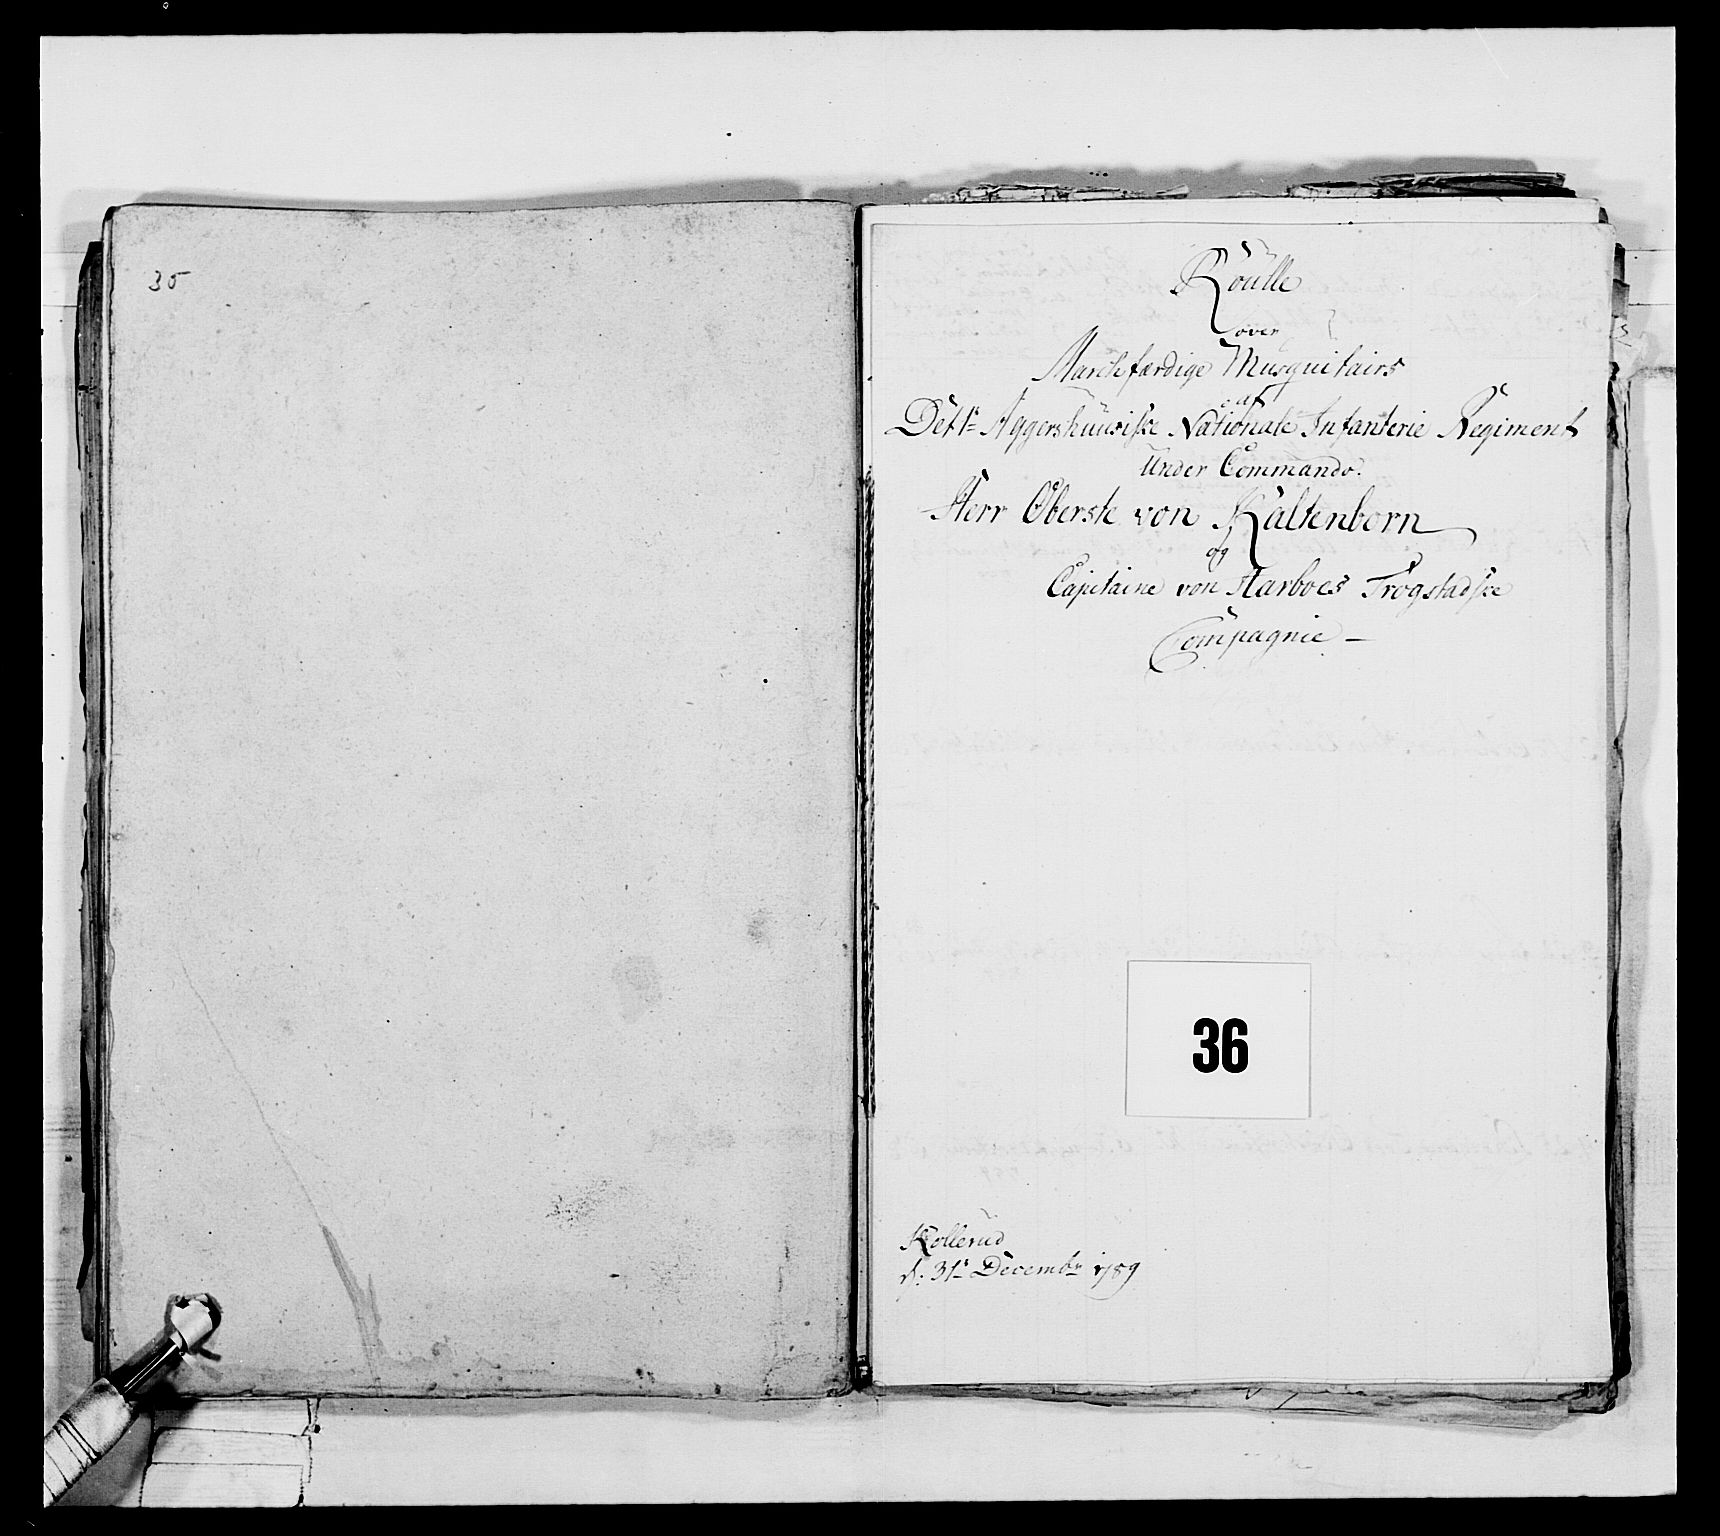 35
Roulle
over
Marchfærdige Musquitairs
af
Det 1te Aggershuusiske Nationale Infanterie Regiment
Under Commando.
Herr Oberste von Kaltenborn
og
Capitaine von Harboes Trogstadske
Compagnie —
36
Kollerud
d: 31te Decembr 1789